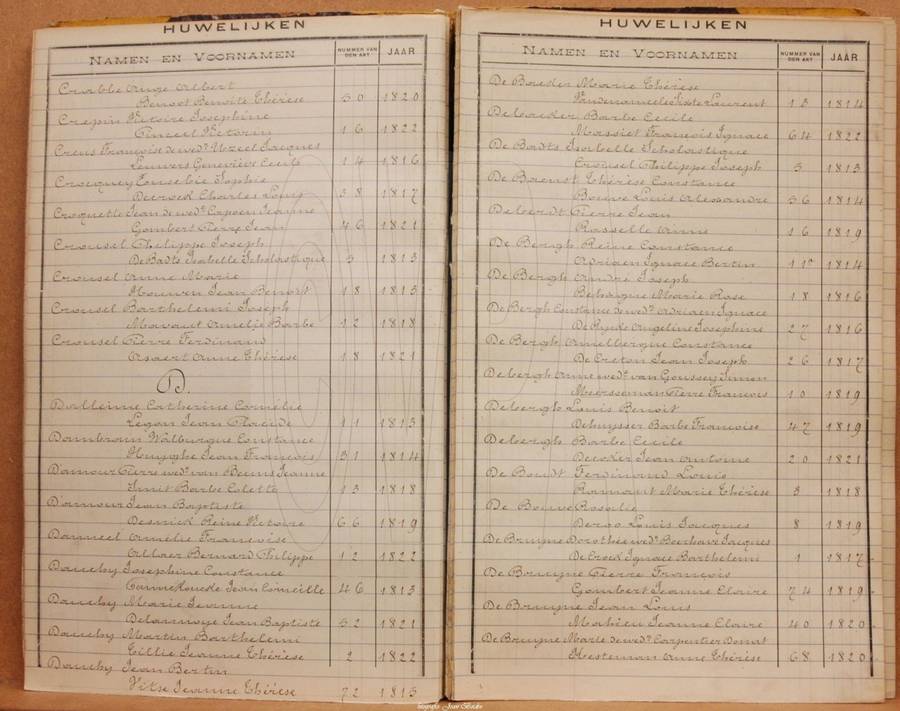 HUWELIJKEN
NAMEN EN VOORNAMEN NUMMER VAN DEN AKT JAAR
Crabbe Ange Albert
Benoot Benoite Thérèse 50 1820
Crepin Victoire Josephine
Pinceel Victorin 16 1822
Creus Françoise de wed. Uzeel Jacques
Leuwers Geneviève Cecile 14 1816
Crocquey Eusebie Sophie
Decrock Charles Louis 38 1817
Croquette Jean de wed. Capoen Jeanne
Gombert Pierre Jean 46 1821
Crousel Philippe Joseph
De Badts Isabelle Scholastique 5 1813
Crousel Anne Marie
Houwen Jean Benoit 18 1815
Crousel Barthelemi Joseph
Mavaut Amelie Barbe 12 1818
Crousel Pierre Ferdinand
Arsaert Anne Thérèse 18 1821
D.
Dalleine Catherine Cornélie
Legon Jean Placide 11 1813
Dambroun Walburgue Constance
Huyghe Jean François 31 1814
Damour Pierre wed. van Beuns Jeanne
Smit Barbe Colette 13 1818
Damour Jean Baptiste
Desnick Reine Victoire 66 1819
Danneel Amelie Françoise
Allaer Bernard Philippe 12 1822
Dauchy Josephine Constance
Cannekoucke Jean Corneille 46 1813
Dauchy Marie Jeanne
Delannoye Jean Baptiste 52 1821
Dauchy Martin Barthelemi
Gillie Jeanne Thérèse 2 1822
Dauchy Jean Bertin
Vitse Jeanne Thérèse 72 1815
HUWELIJKEN
NAMEN EN VOORNAMEN NUMMER VAN DEN AKT JAAR
De Baeder Marie Thérèse
Laurent 15 1814
Debaeder Barbe Cecile
Massiet François Ignace 64 1822
De Badts Isabelle Scholastique
Crousel Philippe Joseph 5 1813
De Baenst Thérèse Constance
Bouve Louis Alexandre 56 1814
Deberdt Pierre Jean
Rasselle Anne 16 1819
De Bergh Reine Constance
Adriaen Ignace Bertin 11 1814
De Bergh André Joseph
Behaigne Marie Rose 18 1816
De Bergh Constance de wed. Adriaen Ignace
De Ruyde Angeline Josephine 27 1816
De Bergh Amelbergue Constance
De Creton Jean Joseph 26 1817
Debergh Anne wed. van Goussey Simon
Meersseman Pierre François 10 1819
Debergh Louis Benoit
Dehuysser Barbe Françoise 47 1819
Debergh Barbe Cecile
Decoker Jean Antoine 20 1821
De Boudt Ferdinand Louis
Ramout Marie Thérèse 3 1818
De Bouve Rosalie
Deroo Louis Jacques 8 1819
De Bruyne Dorothée wed. Boerhave Jacques
De Crock Ignace Barthelemi 1 1817
De Bruyne Pierre François
Gombert Jeanne Claire 74 1819
De Bruyne Jean Louis
Mahieu Jeanne Claire 40 1820
De Bruyne Marie de wed. Carpentier Donat
Hesteman Anne Thérèse 68 1820